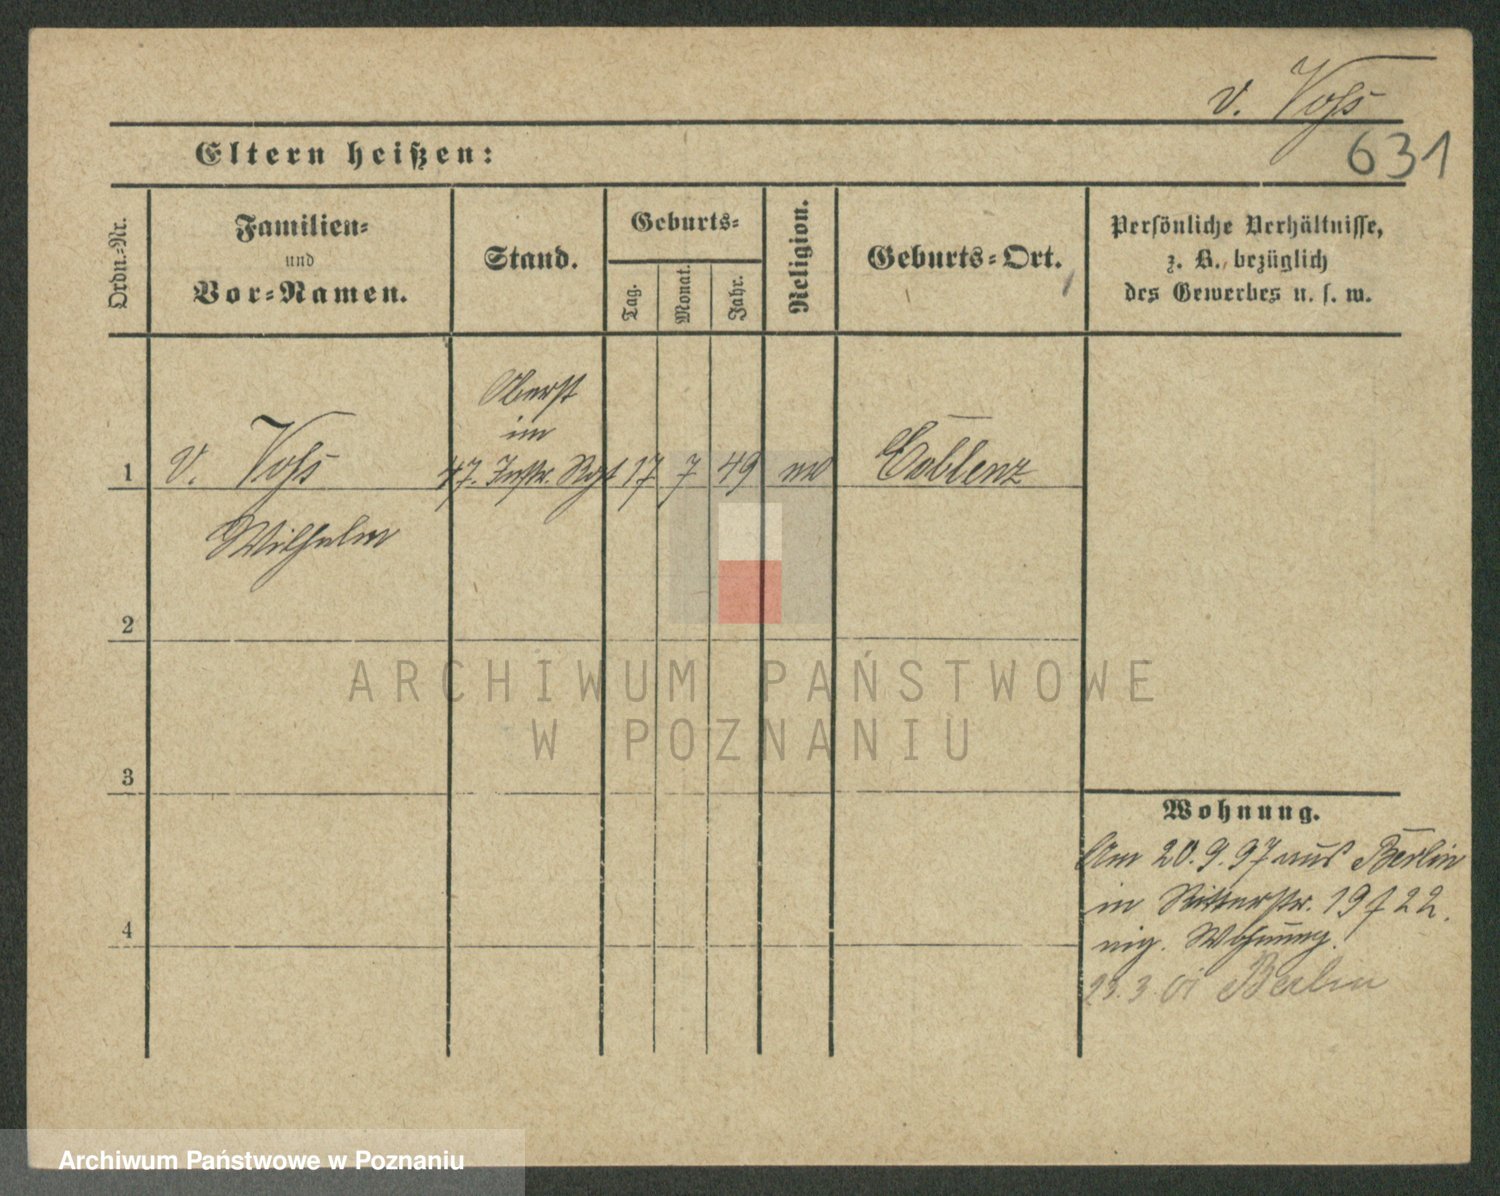 v. Voss
631
Eltern heißen:
Ordn.-Nr.
Familien-
und
Vor-Namen.
Stand.
Geburts-
Tag.
Monat.
Jahr.
Religion.
Geburts-Ort.
Persönliche Verhältnisse,
z. B. bezüglich
des Gewerbes u. s. w.
Oberst
im
1 v. Voss 47. Inftr. Rgt 17 7 49 Coblenz
Wilhelm
2
3
4
Wohnung.
Am 20.9.97 aus Berlin
in Ritterstr. 19 f 22.
eig. Wohnung.
23.3 01 Berlin
ARCHIWUM PAŃSTWOWE
W POZNANIU
Archiwum Państwowe w Poznaniu